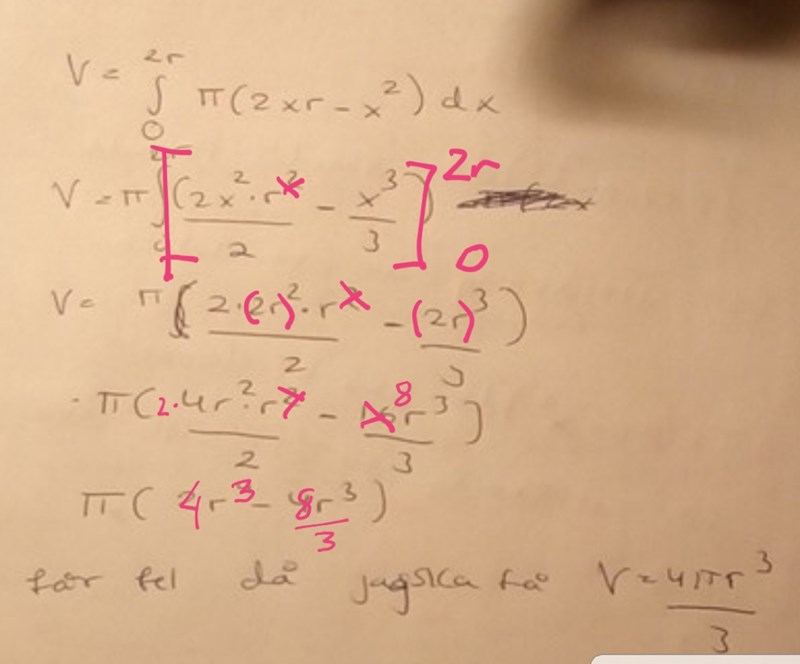 V = ∫₀²ʳ π(2xr - x²) dx
V = π [(2x²·r^x)/2 - x³/3]₀²ʳ
V = π((2·(2r)²·r^x)/2 - (2r)³/3)
π((2·4r²·r)/2 - 8r³/3)
π(4r³ - 8r³/3)
får fel då jag ska få V = 4πr³/3